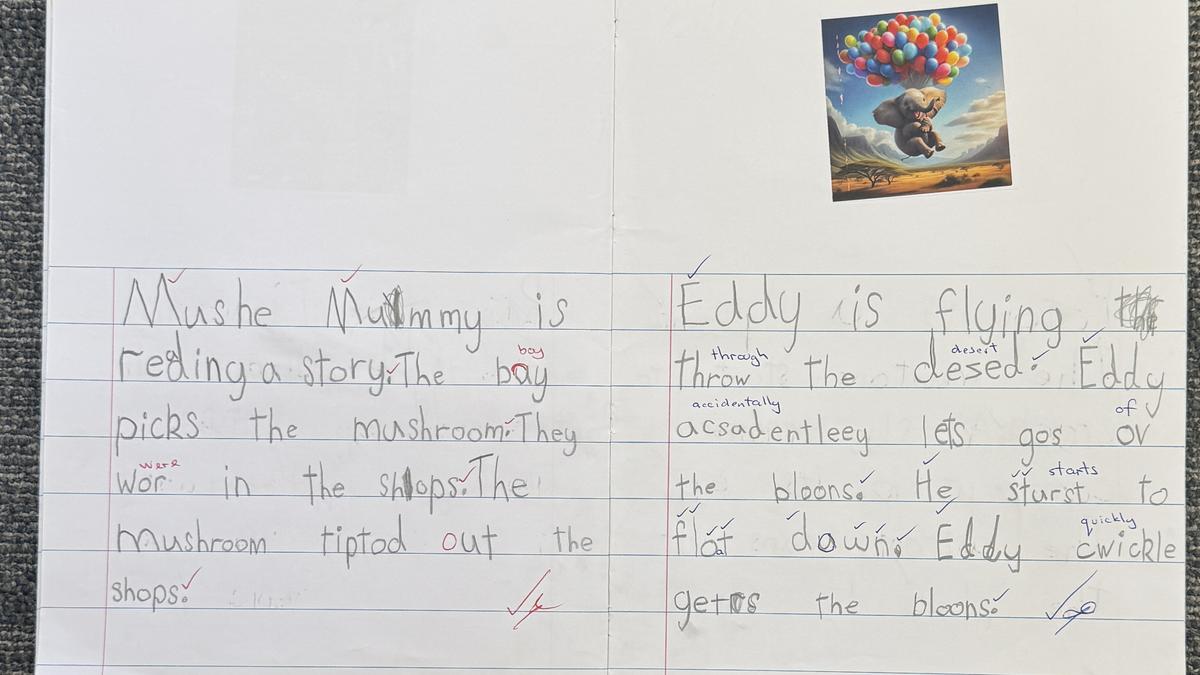 Mushe Mummy is
boy
reding a story. The bay
picks the mushroom. They
were
wor in the shops. The
mushroom tiptod out the
shops.
Eddy is flying
through desert
throw the desed. Eddy
accidentally of
acsadentleey lets gos ov
starts
the bloons. He sturst to
flot dawn. Eddy cwickle
a quickly
gets the bloons.